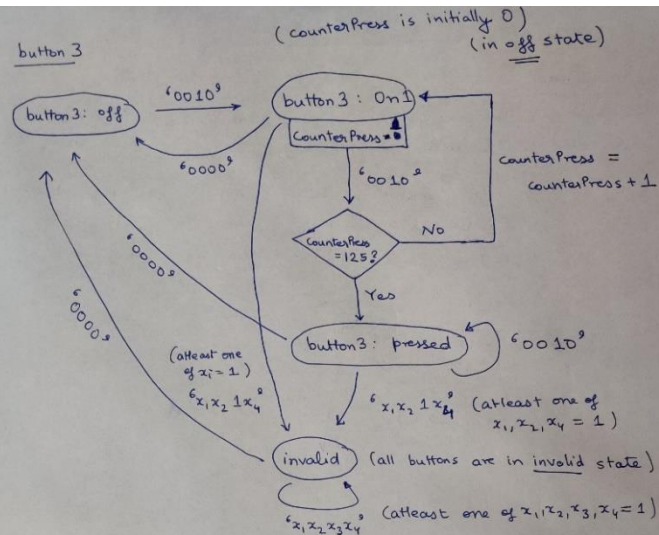 (counterPress is initially 0)
(in off state)
button 3
button 3: off
'0010'
button 3 : On1
counterPress =
'0000'
'0010'
counterPress =
counterPress + 1
counterPress
= 125?
No
Yes
'0000'
'0000'
button 3: pressed
'0010'
(atleast one
of xi = 1)
'x1 x2 1 x4'
'x1 x2 1 x4' (atleast one of
x1, x2, x4 = 1)
invalid (all buttons are in invalid state)
'x1 x2 x3 x4' (atleast one of x1, x2, x3, x4 = 1)